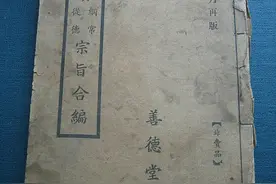 月再版
【非賣品】
善德堂
綱常
從德
宗旨合編